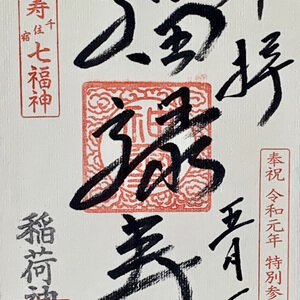 奉祝 令和元年 特別参
拝
五月一
福禄寿
寿 千住宿 七福神
稲荷神